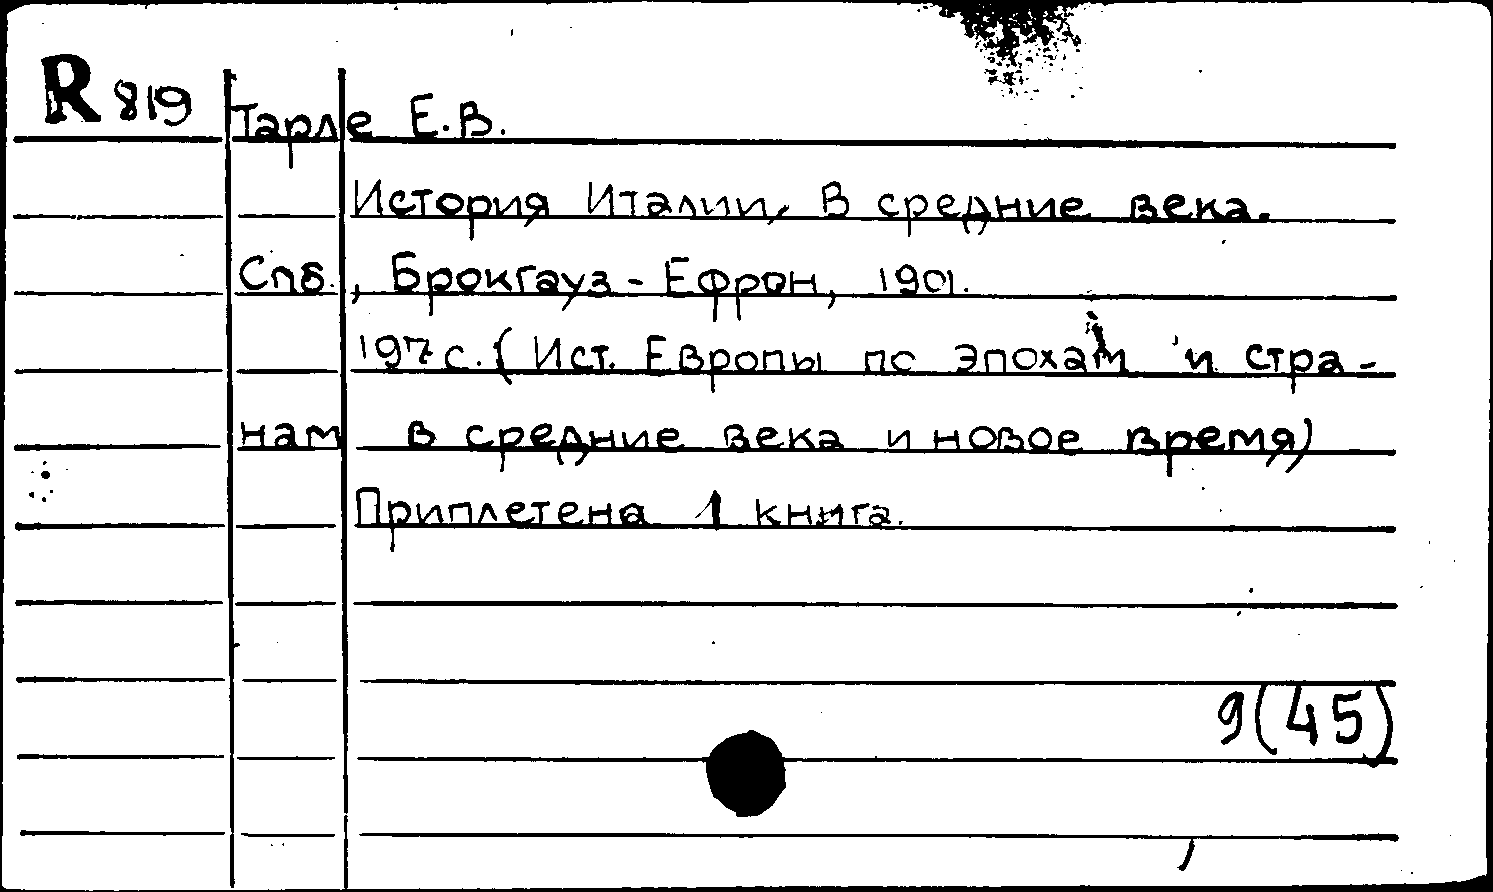 R 819 Тарле Е.В.
История Италии, В средние века.
Спб., Брокгауз-Ефрон, 1901.
197 с. (Ист. Европы по эпохам и стра-
нам в средние века и новое время)
Приплетена 1 книга.
9(45)